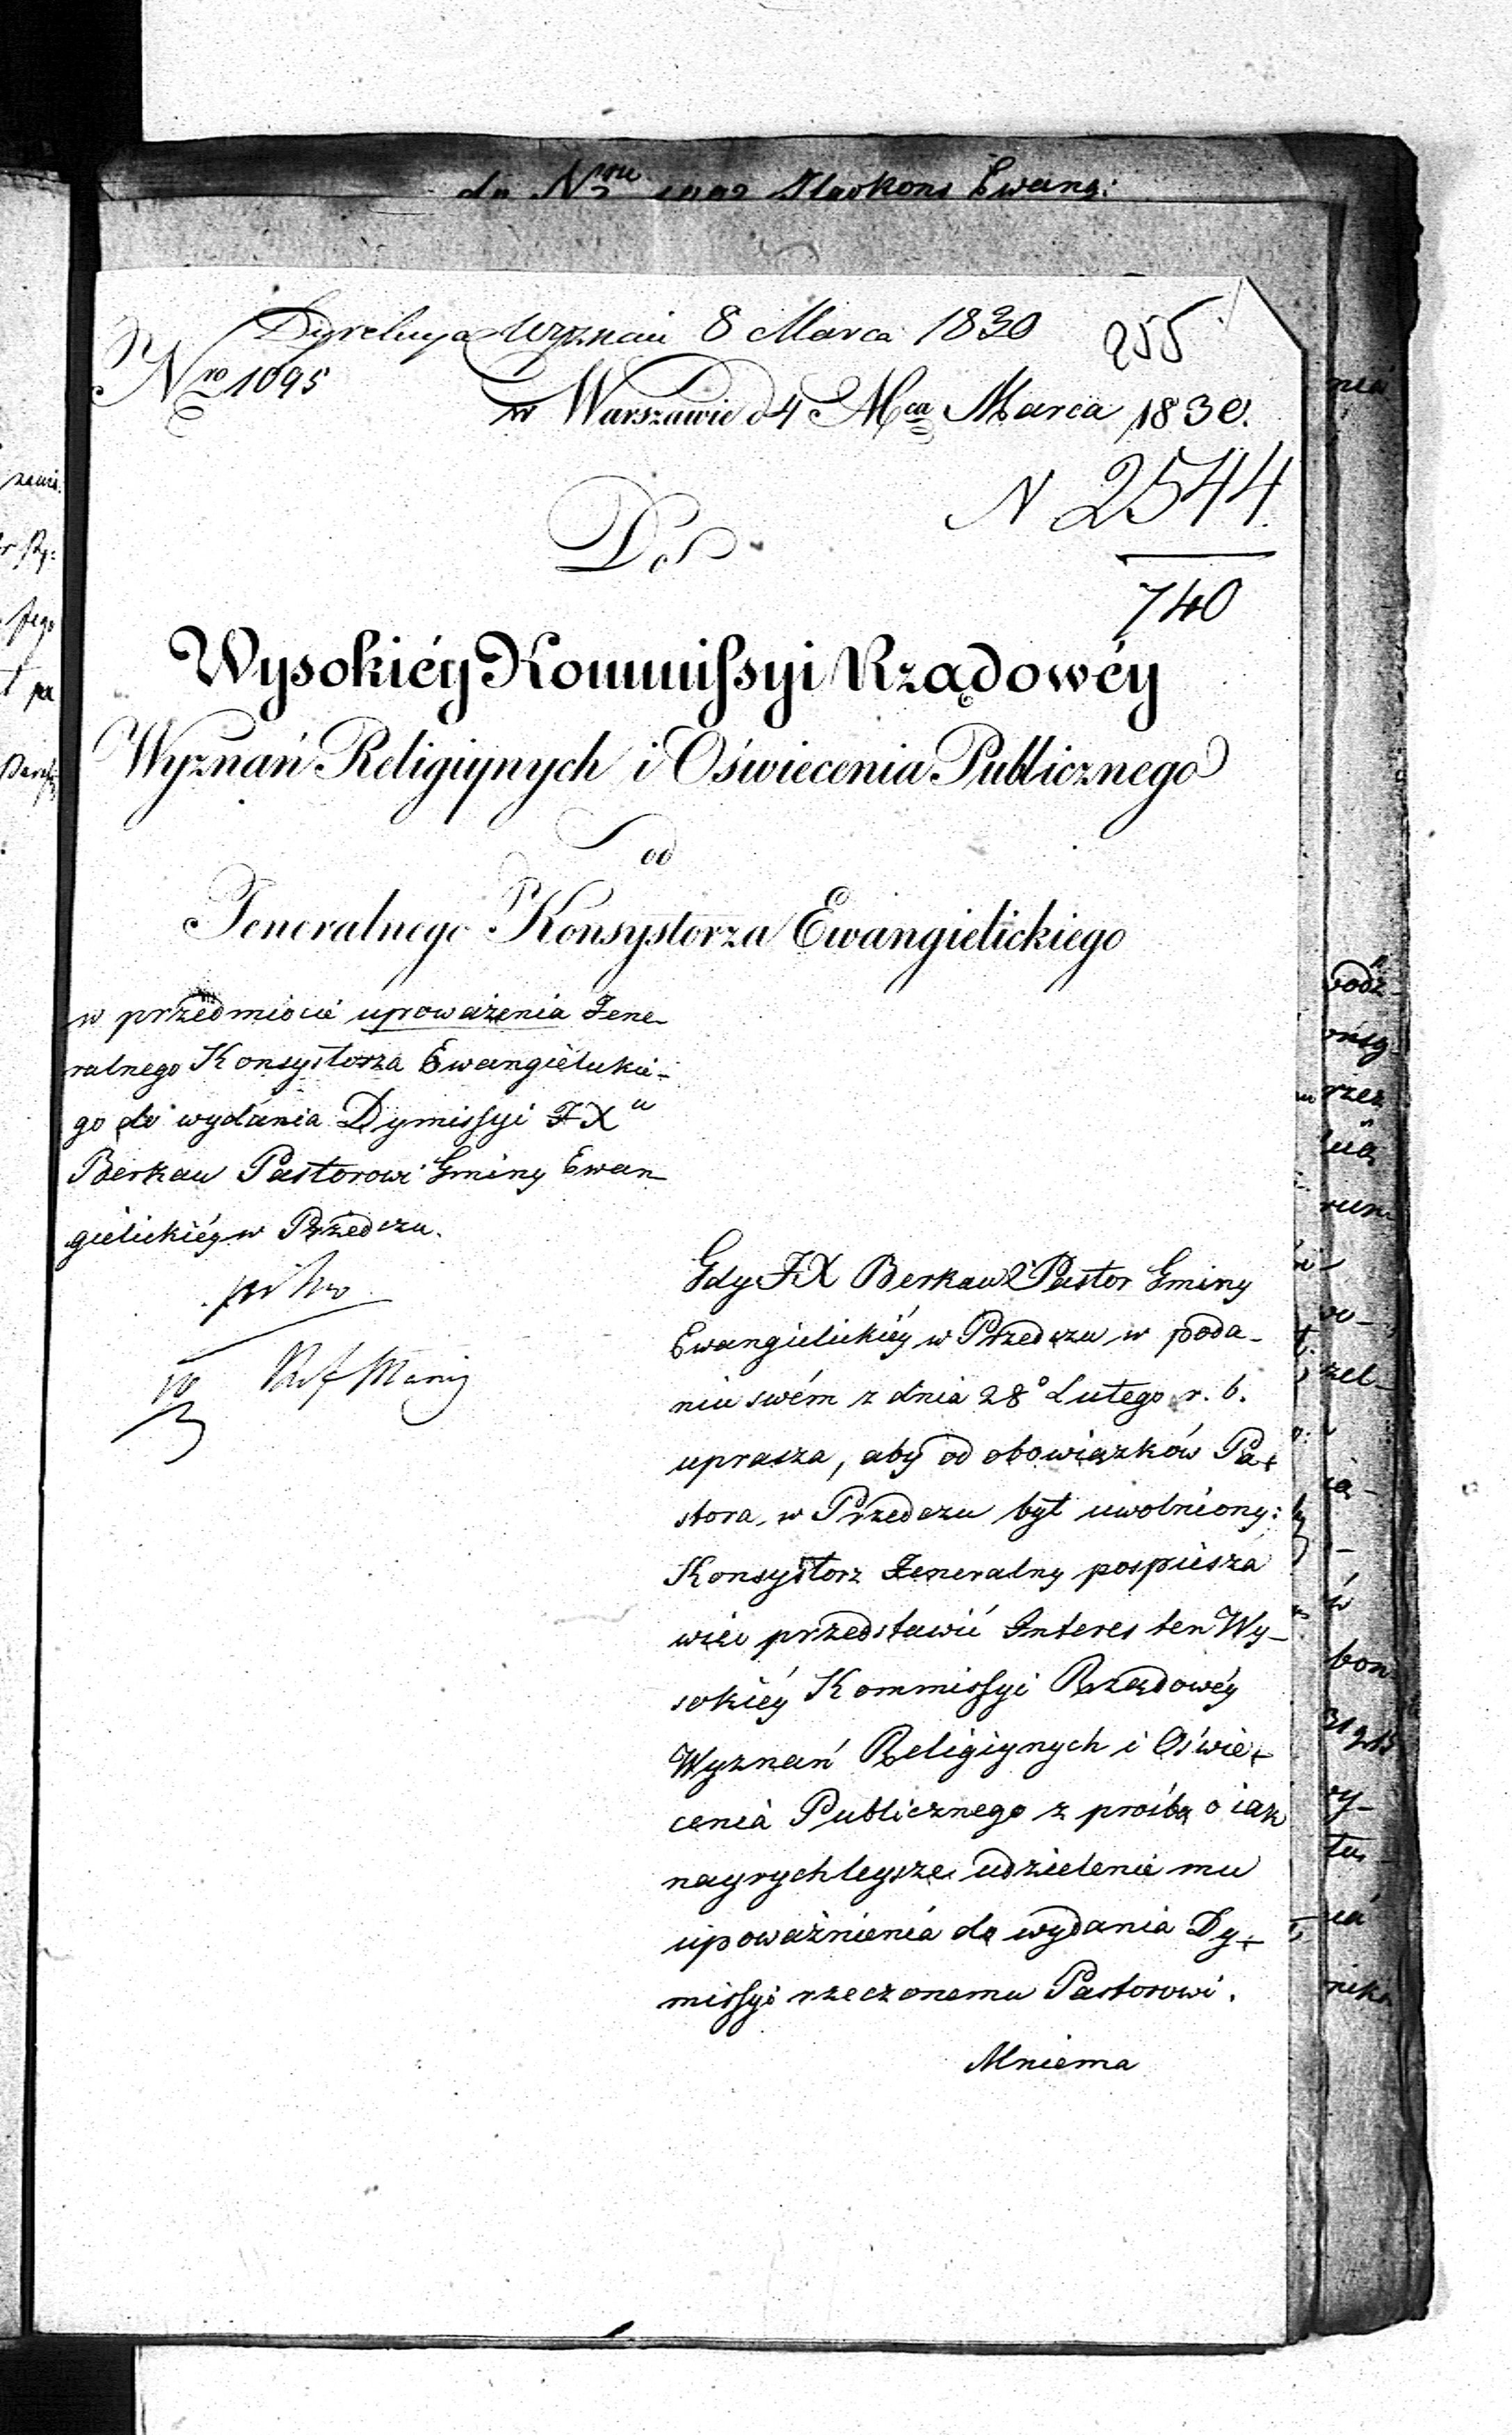 Dyrekcya Wyznań 8 Marca 1830
255
Nro 1095
w Warszawie d 4 Mca Marca 1830.
N 2544
740
Do
Wysokiéy Kommissyi Rządowéy
Wyznań Religiynych i Oświecenia Publicznego
od
Jeneralnego Konsystorza Ewangielickiego
w przedmiocie upoważenia Jene-
ralnego Konsystorza Ewangielickie-
go do wydania Dymissyi JXu
Berkau Pastorowi Gminy Ewan-
gielickiéy w Przedczu.
Gdy JX Berkau Pastor Gminy
Ewangielickiéy w Przedczu w poda-
niu swém z dnia 28° Lutego r. b.
uprasza, aby od obowiązków Pa-
stora w Przedczu był uwolniony:
Konsystorz Jeneralny pospiesza
więc przedstawić Interes ten Wy-
sokiéy Kommissyi Rządowéy
Wyznań Religiynych i Oświe-
cenia Publicznego z prośbą o iak
nayrychleysze udzielenie mu
upoważnienia do wydania Dy-
missyi rzeczonemu Pastorowi.
Mniema